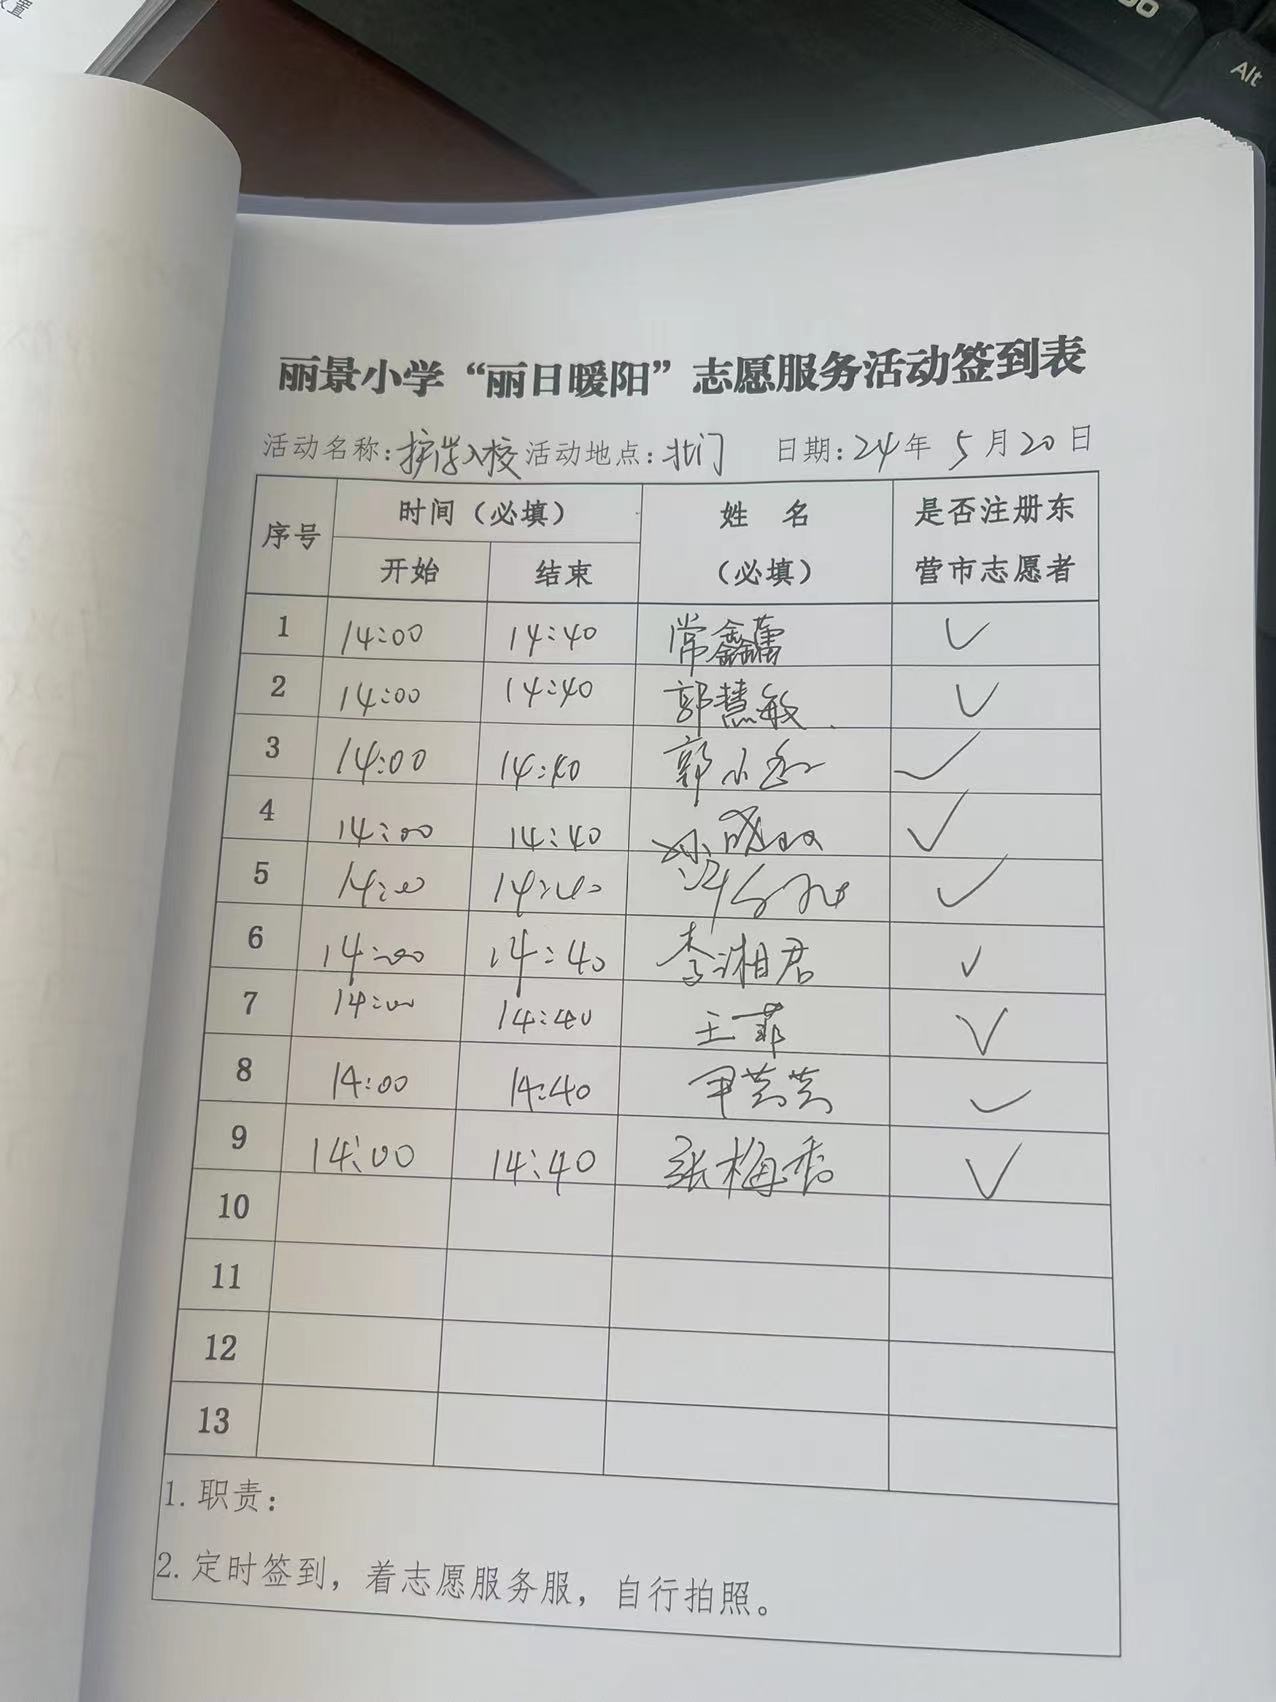 置
Alt
丽景小学“丽日暖阳”志愿服务活动签到表
活动名称：护学入校 活动地点：北门 日期：24年5月20日
序号 时间（必填） 姓 名（必填） 是否注册东营市志愿者
开始 结束
1 14:00 14:40 常鑫蕾 ✓
2 14:00 14:40 郭慧敏 ✓
3 14:00 14:40 郭小 ✓
4 14:00 14:40 ✓
5 14:00 14:40 ✓
6 14:00 14:40 李湘君 ✓
7 14:00 14:40 王菲 ✓
8 14:00 14:40 尹芸芸 ✓
9 14:00 14:40 张梅香 ✓
10
11
12
13
1. 职责：
2. 定时签到，着志愿服务服，自行拍照。